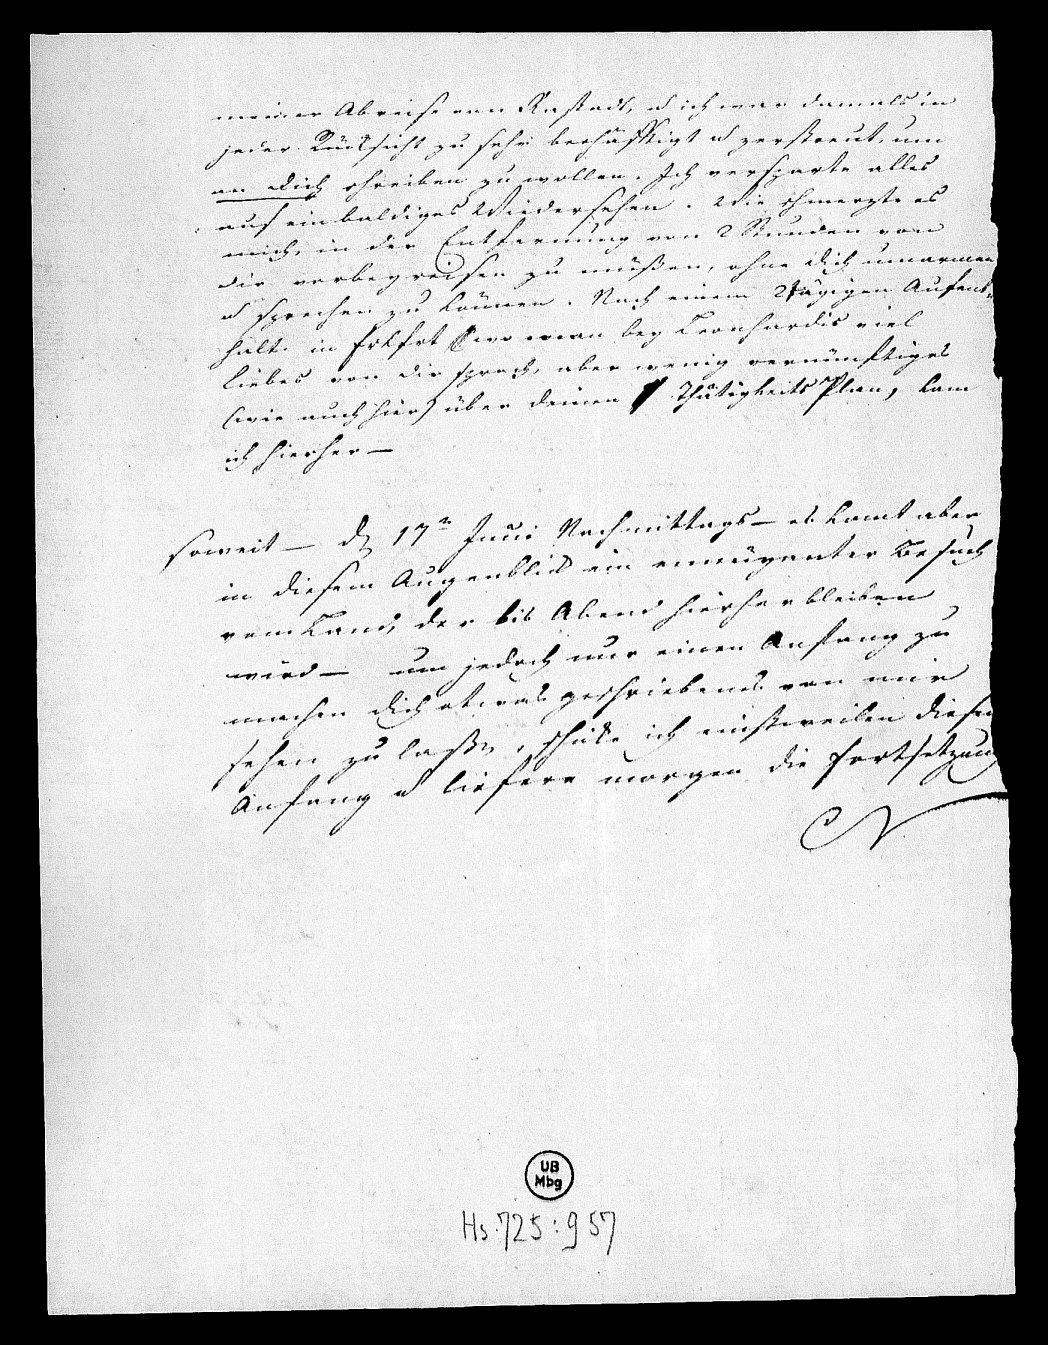 meiner Abreise von Rastadt, u ich war damals in
jeder Rücksicht zu sehr beschäftigt u zerstreut, um
an Dich schreiben zu wollen. Ich versparte alles
auf ein baldiges Wiedersehen. Wie schmerzte es
mich, in der Entfernung von 2 Stunden von
Dir vorbeyreisen zu müßen, ohne Dich umarmen
u sprechen zu können. Nach einem 2tägigen Aufent-
halt in Frkfrt wo man bey Leonhardis viel
liebes von dir sprach, aber wenig vernünftiges
(wie auch hier) über deinen Thätigkeits Plan, kam
ich hierher —
soweit — d 17n Juni Nachmittags — es komt aber
in diesem Augenblick ein Besuch
vom Land, der bis Abend hierher bleiben
wird — um jedoch nur einen Anfang zu
machen Dich etwas geschriebenes von mir
sehen zu laßen, schicke ich einstweilen diesen
Anfang u liefere morgen die Fortsetzung
UB
Mbg
Hs. 725:957